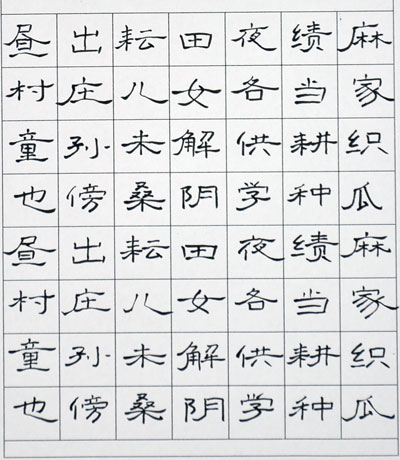 昼出耘田夜绩麻
村庄儿女各当家
童孙未解供耕织
也傍桑阴学种瓜
昼出耘田夜绩麻
村庄儿女各当家
童孙未解供耕织
也傍桑阴学种瓜